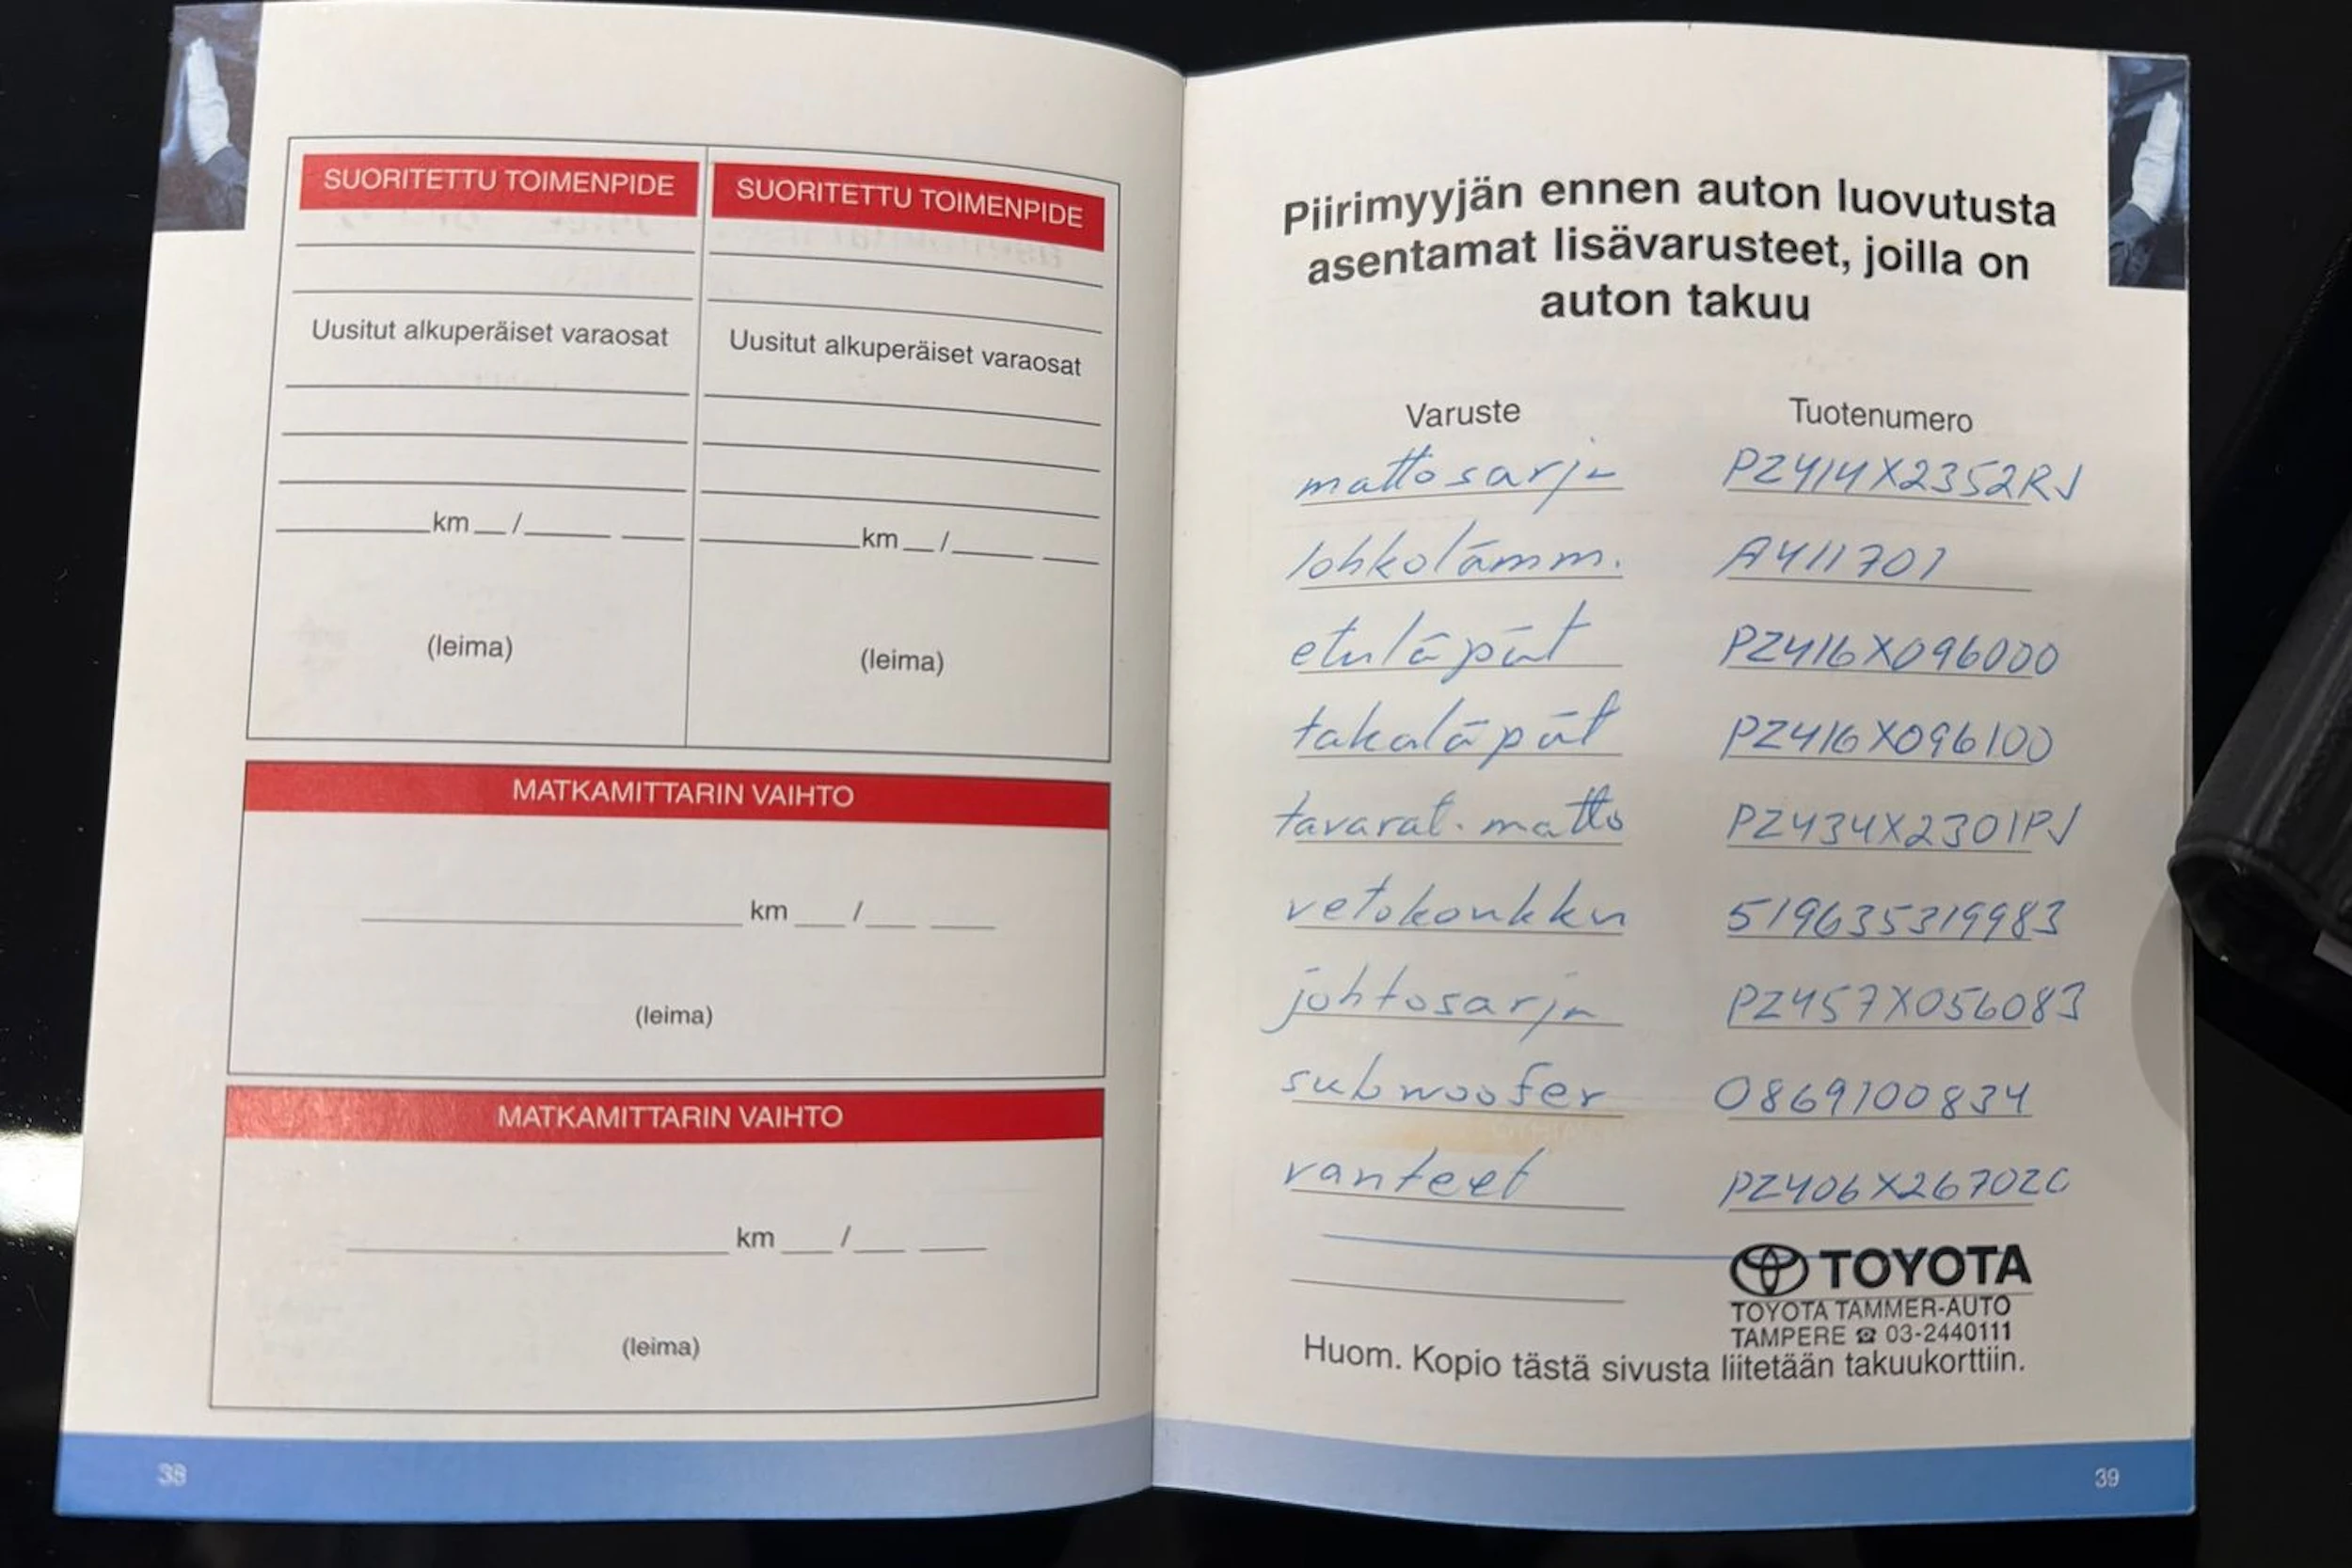 SUORITETTU TOIMENPIDE
Uusitut alkuperäiset varaosat
km / 
(leima)
SUORITETTU TOIMENPIDE
Uusitut alkuperäiset varaosat
km / 
(leima)
MATKAMITTARIN VAIHTO
km / 
(leima)
MATKAMITTARIN VAIHTO
km / 
(leima)
38
Piirimyyjän ennen auton luovutusta
asentamat lisävarusteet, joilla on
auton takuu
Varuste Tuotenumero
mattosarja PZ414X2352RJ
lohkolämm. A411701
etuläpät PZ416X096000
takaläpät PZ416X096100
tavarat. matto PZ434X2301PJ
vetokoukku 519635319983
johtosarja PZ457X056083
subwoofer 0869100834
vanteet PZ406X2670ZC
TOYOTA
TOYOTA TAMMER-AUTO
TAMPERE ☎ 03-2440111
Huom. Kopio tästä sivusta liitetään takuukorttiin.
39